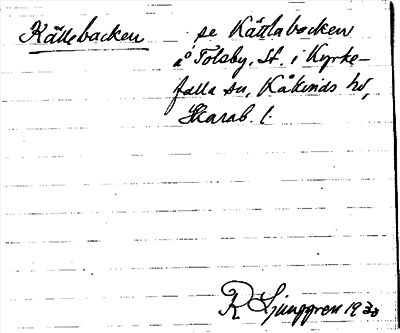 Källebacken se Källabacken
å Tolsby. St. i Kyrke-
falla sn, Kåkinds hd,
Skarab. l.
R Ljunggren 1933